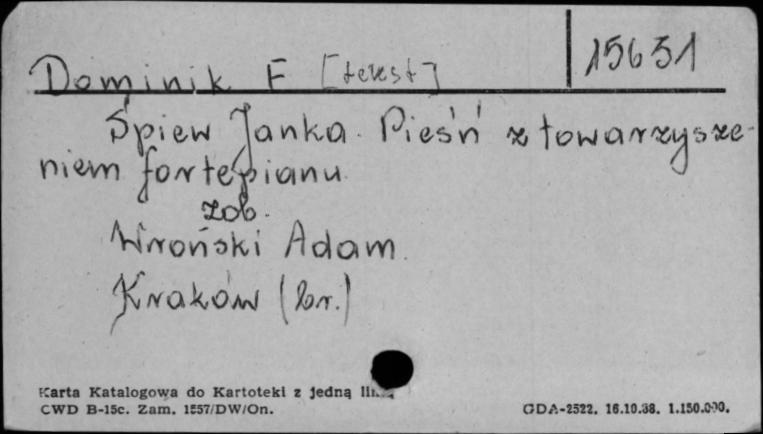 Dominik F [tekst] 15651
Śpiew Janka. Pieśń z towarzysze-
niem fortepianu.
zob.
Wroński Adam.
Kraków (b.r.)
Karta Katalogowa do Kartoteki z jedną
CWD B-15c. Zam. 1557/DW/On.
GDA-2522. 16.10.38. 1.150.000.